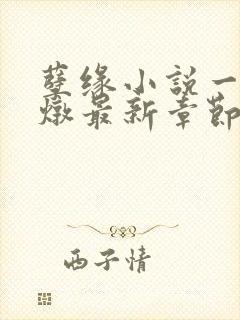 孽缘小説一
燉最新章節
西子情